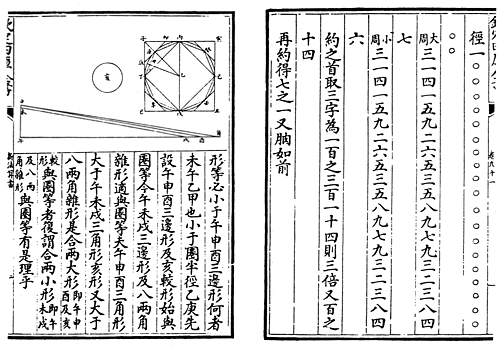 徑一〇〇〇〇〇〇〇〇〇〇〇〇〇〇〇〇〇〇
〇〇
大周三一四一五九二六五三五八九七九三二三八四
七
小周三一四一五九二六五三五八九七九三二三八四
六
約之首取三字為一百之三百一十四則三倍又百之
十四
再約得七之一又朒如前
形等必小于午申酉三邊形何者
未午乙甲也小于圜半徑乙庚先
設午申酉三邊形及較形始與
圜等今午未戌三邊形及八兩角
雜形適與圜等夫午申酉三角形
大于午未戌三角形亥形又大于
八兩角雜形是合兩大形即午申酉及亥
較形與圜等者復謂合兩小形即午未戌
及八兩角雜形與圜等有是理乎